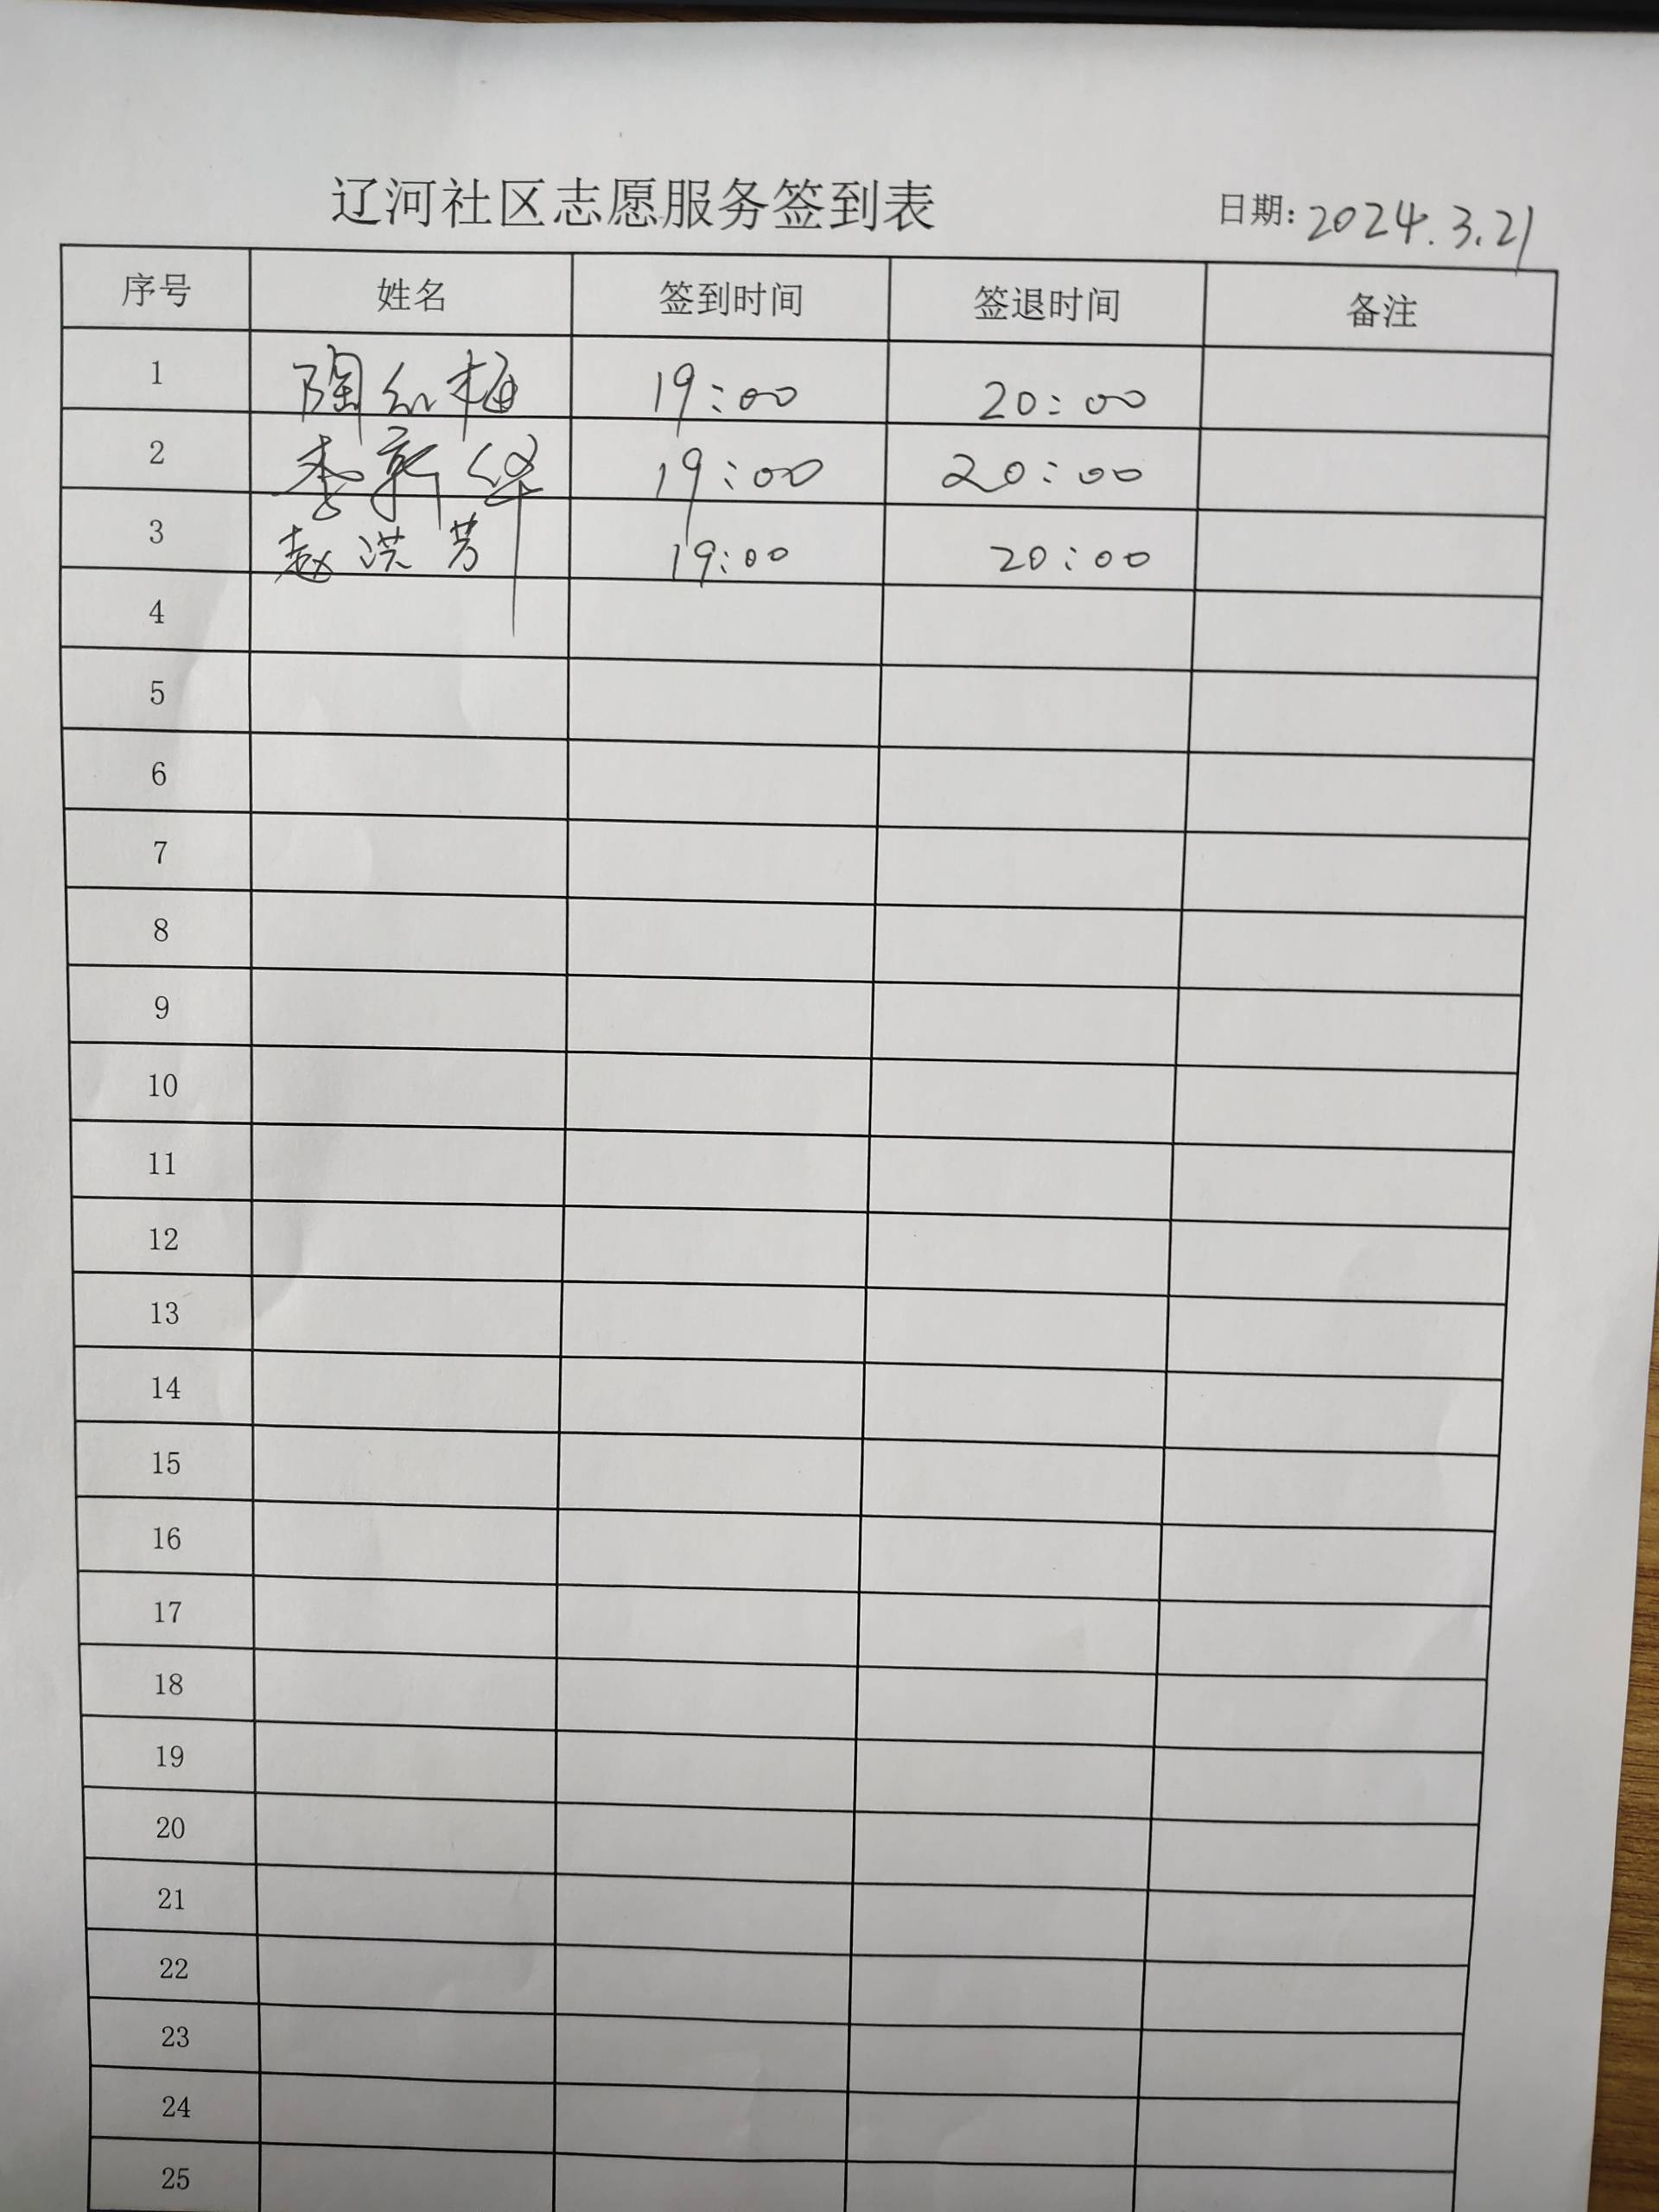 辽河社区志愿服务签到表 日期: 2024.3.21
序号 姓名 签到时间 签退时间 备注
1 陶红梅 19:00 20:00
2 李新华 19:00 20:00
3 赵洪芳 19:00 20:00
4
5
6
7
8
9
10
11
12
13
14
15
16
17
18
19
20
21
22
23
24
25